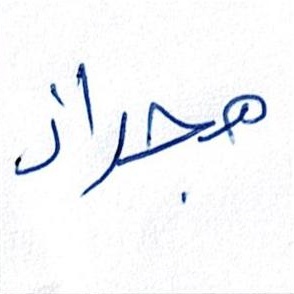 هجراز